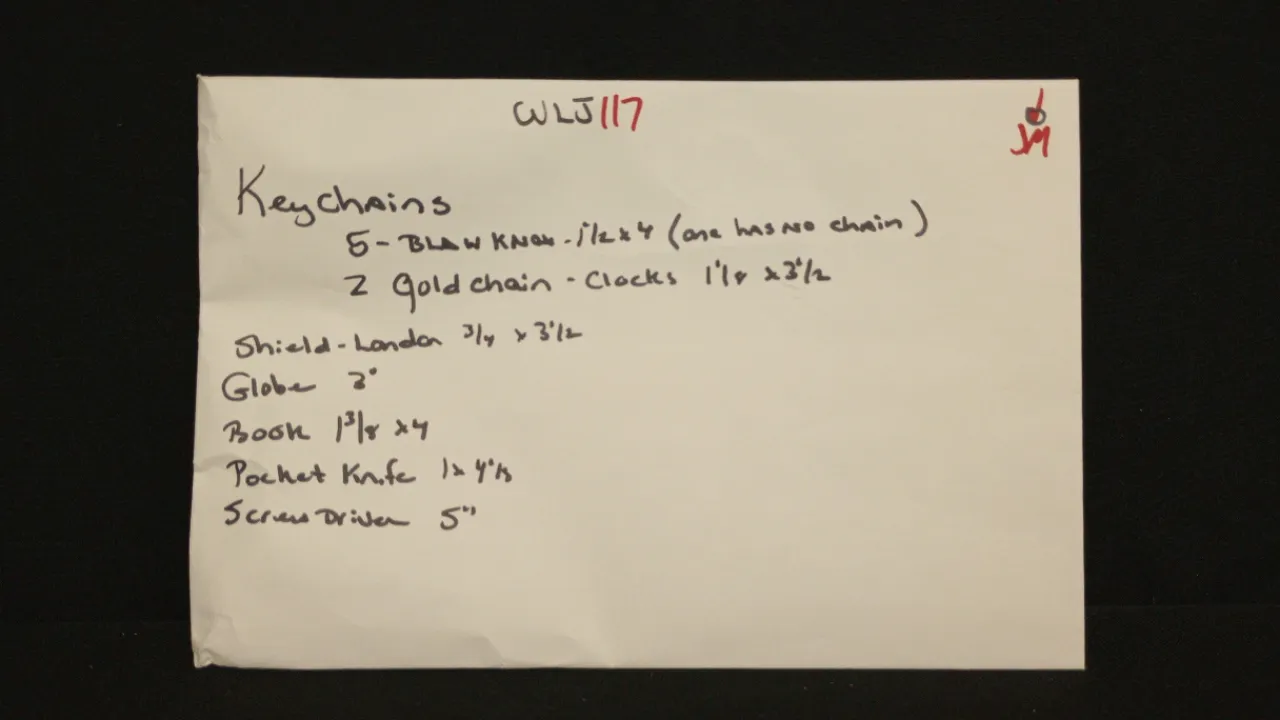 WLJ117
JM
Keychains
5 - BLAW KNOX - 1 1/2 x 4 (one has no chain)
2 Gold chain - Clocks 1 1/8 x 3 1/2
Shield - London 3/4 x 3 1/2
Globe 3"
Book 1 3/8 x 4
Pocket Knife 1 x
Screw Driver 5"